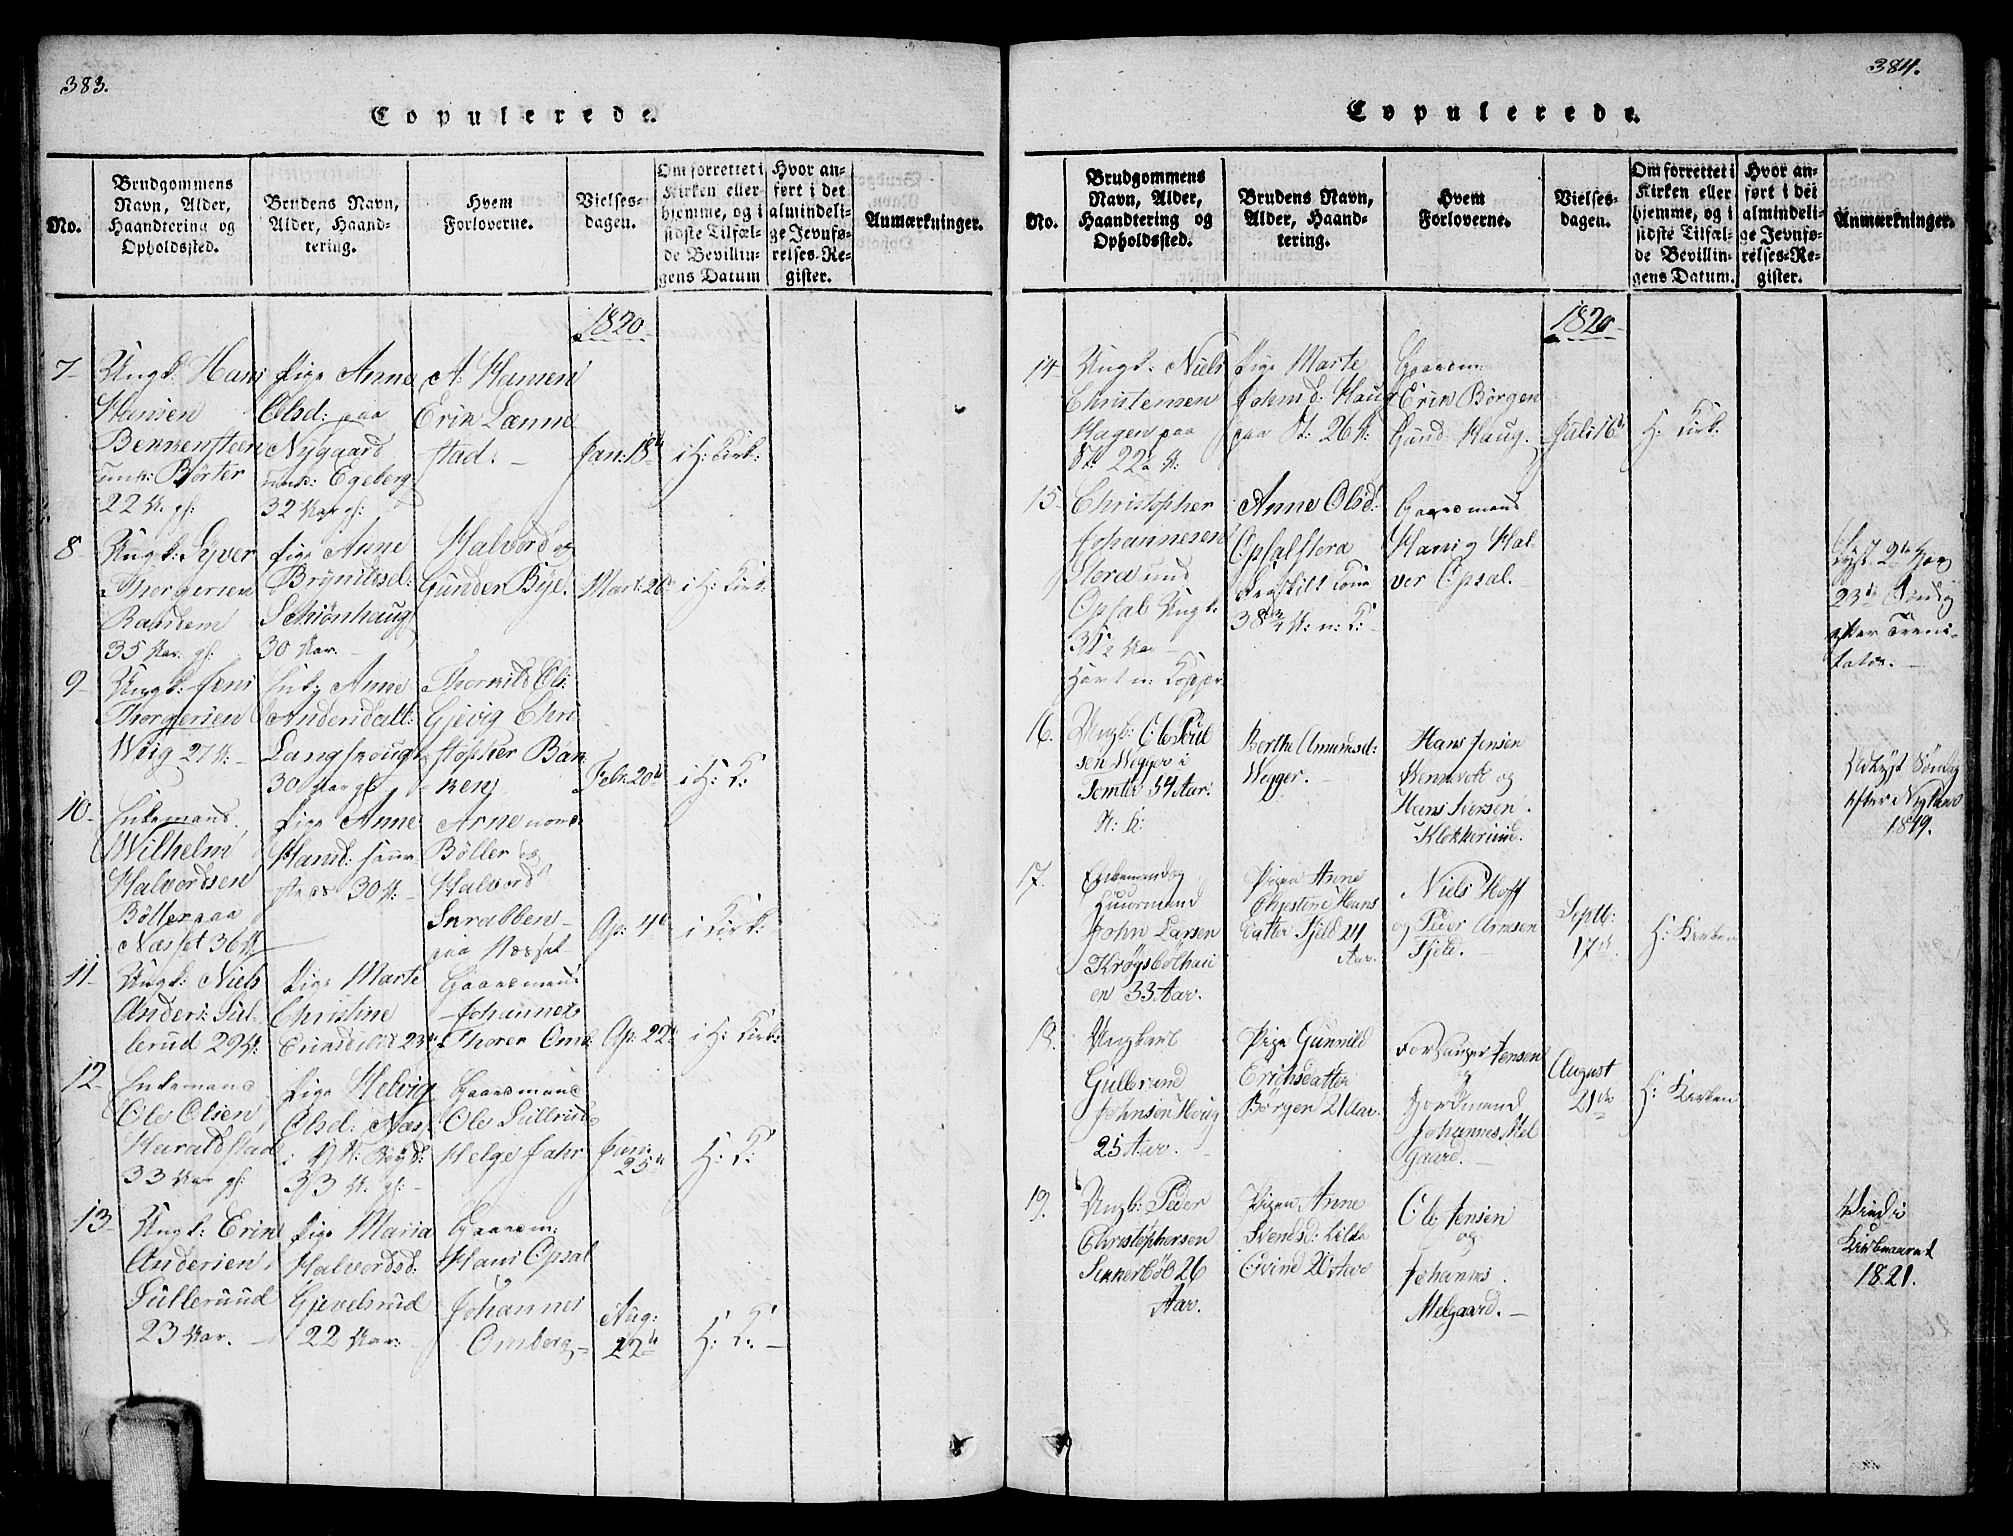 383.
Copulerede.
No.
Brudgommens
Navn, Alder,
Haandtering og
Opholdssted.
Brudens Navn,
Alder, Haand-
tering.
Hvem
Forloverne.
Vielses-
dagen.
Om forrettet i
Kirken eller
hjemme, og i
sidste Tilfæl-
de Bevillin-
gens Datum
Hvor an-
ført i det
almindeli-
ge Jevnfø-
relses-Re-
gister.
Anmærkninger.
1820
7
Ungk: Hans
Hansen
Bennensteen
Børter
22
Pige Anne
Olsd: paa
Nygaard
Egeberg
32 Aar gl:
A: Hansen
Erik Lanne
stad.
Jan: 18
i H: Kirk:
8
Ungk: Syver
Thorgersen
Randem
35 Aar. gl:
Pige Anne
Brynildsd:
Schiønhaug
30 Aar.
Halvord og
Gunder Bye.
Mart: 26
i H: Kirk:
9
Ungk: Jens
Thorgersen
Wiig 27 A:
Enke Anne
Andersdatt:
30 Aar gl:
Thorkild Ol:
Gjevig Chri
stopher Ban
ken
Febr: 20
i H: K:
10
Enkemand
Wilhelm
Halvordsen
Bøller paa
Næsset 36 A:
Pige Anne
30 A:
Arne
Bøller og
Halvord
Skrabben
paa Næsset
Ap: 4
i Kirk:
11
Ungk: Niels
Anders: Sul-
lerud 29 A:
Pige Marte
Christine
Gaardmand
Johannes
Thorer Omb:
Ap: 22
i H: Kirk:
12
Enkemand
Ole Olsen
Haraldstad
33 Aar gl:
Pige Helvig
Olsd: Næs
33 A. gl:
Gaardmand
Ole Sullerud
Helge Jahr
Juni
25
H: K:
13
Ungk: Erik
Andersen
Sullerud
23 Aar.
Pige Maria
Halvordsd:
Gjevelsrud
22 Aar:
Gaardm:
Hans Opsal
Johannes
Omberg
Aug:
22
H: K:
384.
Copulerede.
No.
Brudgommens
Navn, Alder,
Haandtering og
Opholdssted.
Brudens Navn,
Alder, Haand-
tering.
Hvem
Forloverne.
Vielses-
dagen.
Om forrettet i
Kirken eller
hjemme, og i
sidste Tilfæl-
de Bevillin-
gens Datum.
Hvor an-
ført i det
almindeli-
ge Jevnfø-
relses-Re-
gister.
Anmærkninger.
1820
14
Ungk: Niels
Christensen
Hagen paa
22
Pige Marte
Johnsd: Haug
paa 26 A:
Gaardm:
Erik Børgen
Haug.
Juli 16
H: Kirk:
15
Christopher
Johannesen
Opsal Ungk:
Anne Olsd:
38
Gaardmand
Hans og Hal-
ver Opsal.
Lyst 2de
23de Søndag
efter Trini-
tatis.
16.
Ungk: Ole Poul
sen Wegger i
Tomter 54 Aar.
Berthe Amundsd:
Wegger.
Hans Jensen
og
Hans Iversen
Klokkerud.
Udlyst Søndag
efter Nytaar
1819.
17.
Enkemand og
Huusmand
John Larsen
Krogsbølhau
en 33 Aar.
Pigen Anne
Christine Hans
Datter Fjeld 21
Aar.
Niels Hoff
og Peder Arnesen
Fjeld.
Septb:
17de
H: Kirken
18.
Ungkarl
Gulbrand
Johnsen Houg
25 Aar.
Pige Gunnild
Erichsdatter
Børgen 21 Aar.
Forsanger Jensen
og
Gordmand
Johannes Mel
Gaard.
August
21de
H: Kirken
19.
Ungk: Peder
Christophersen
Sikkerbøl 26
Aar.
Pigen Anne
Svendsd: Lilde
Evind 20 Aar
Ole Jensen
og
Johannes
Melgaard.
Vied i
Kirkeaaret
1821.